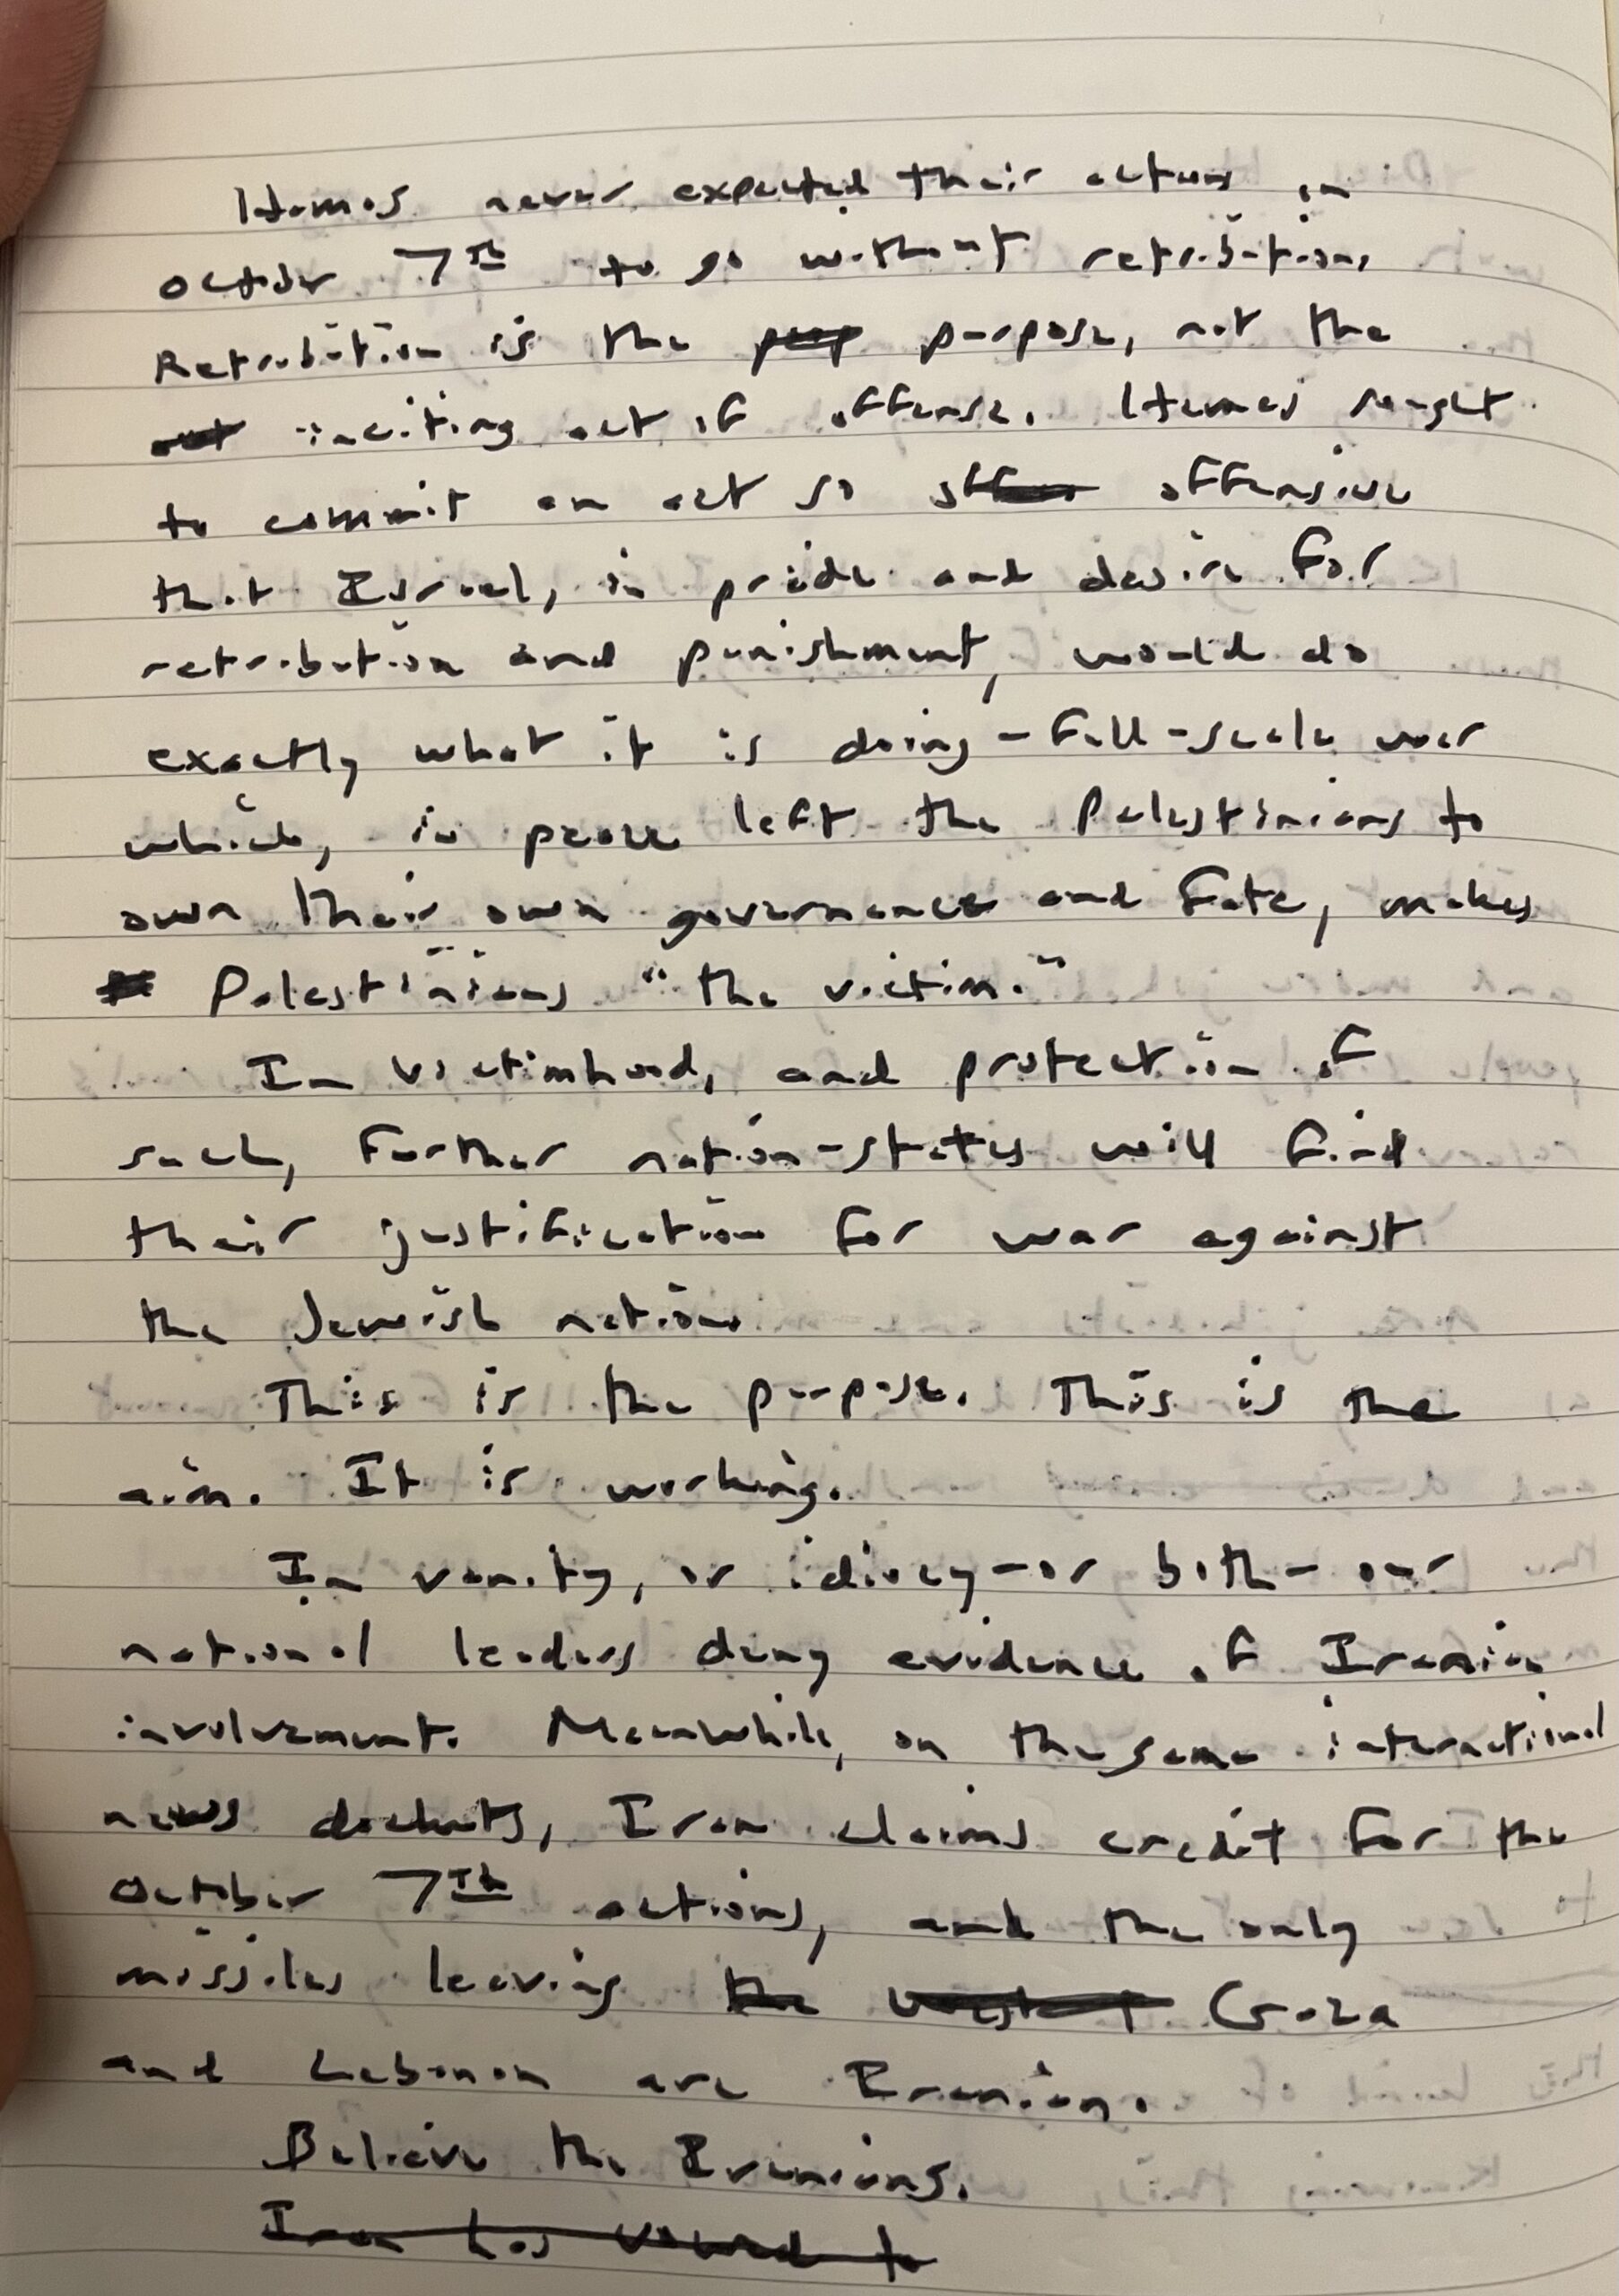 Hamas never expected their actions on
October 7th to go without retribution.
Retribution is the purp purpose, not the
act inciting act of offense. Hamas sought
to commit an act so offens offensive
that Israel, in pride and desire for
retribution and punishment, would do
exactly what it is doing - full-scale war
which, in peace left the Palestinians to
own their own governance and fate, makes
Palestinians "the victim."
In victimhood, and protection of
such, further nation-states will find
their justification for war against
the Jewish nation.
This is the purpose. This is the
aim. It is working.
In vanity, or idiocy - or both - our
national leaders deny evidence of Iranian
involvement. Meanwhile, on the same international
news dockets, Iran claims credit for the
October 7th actions, and the only
missiles leaving the Gaza
and Lebanon are Iranian.
Believe the Iranians.
Iran has vowed to